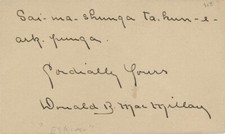 Sai-ma-shunga ta-kun-e-
ark-punga.
Cordially Yours
Donald B MacMillan